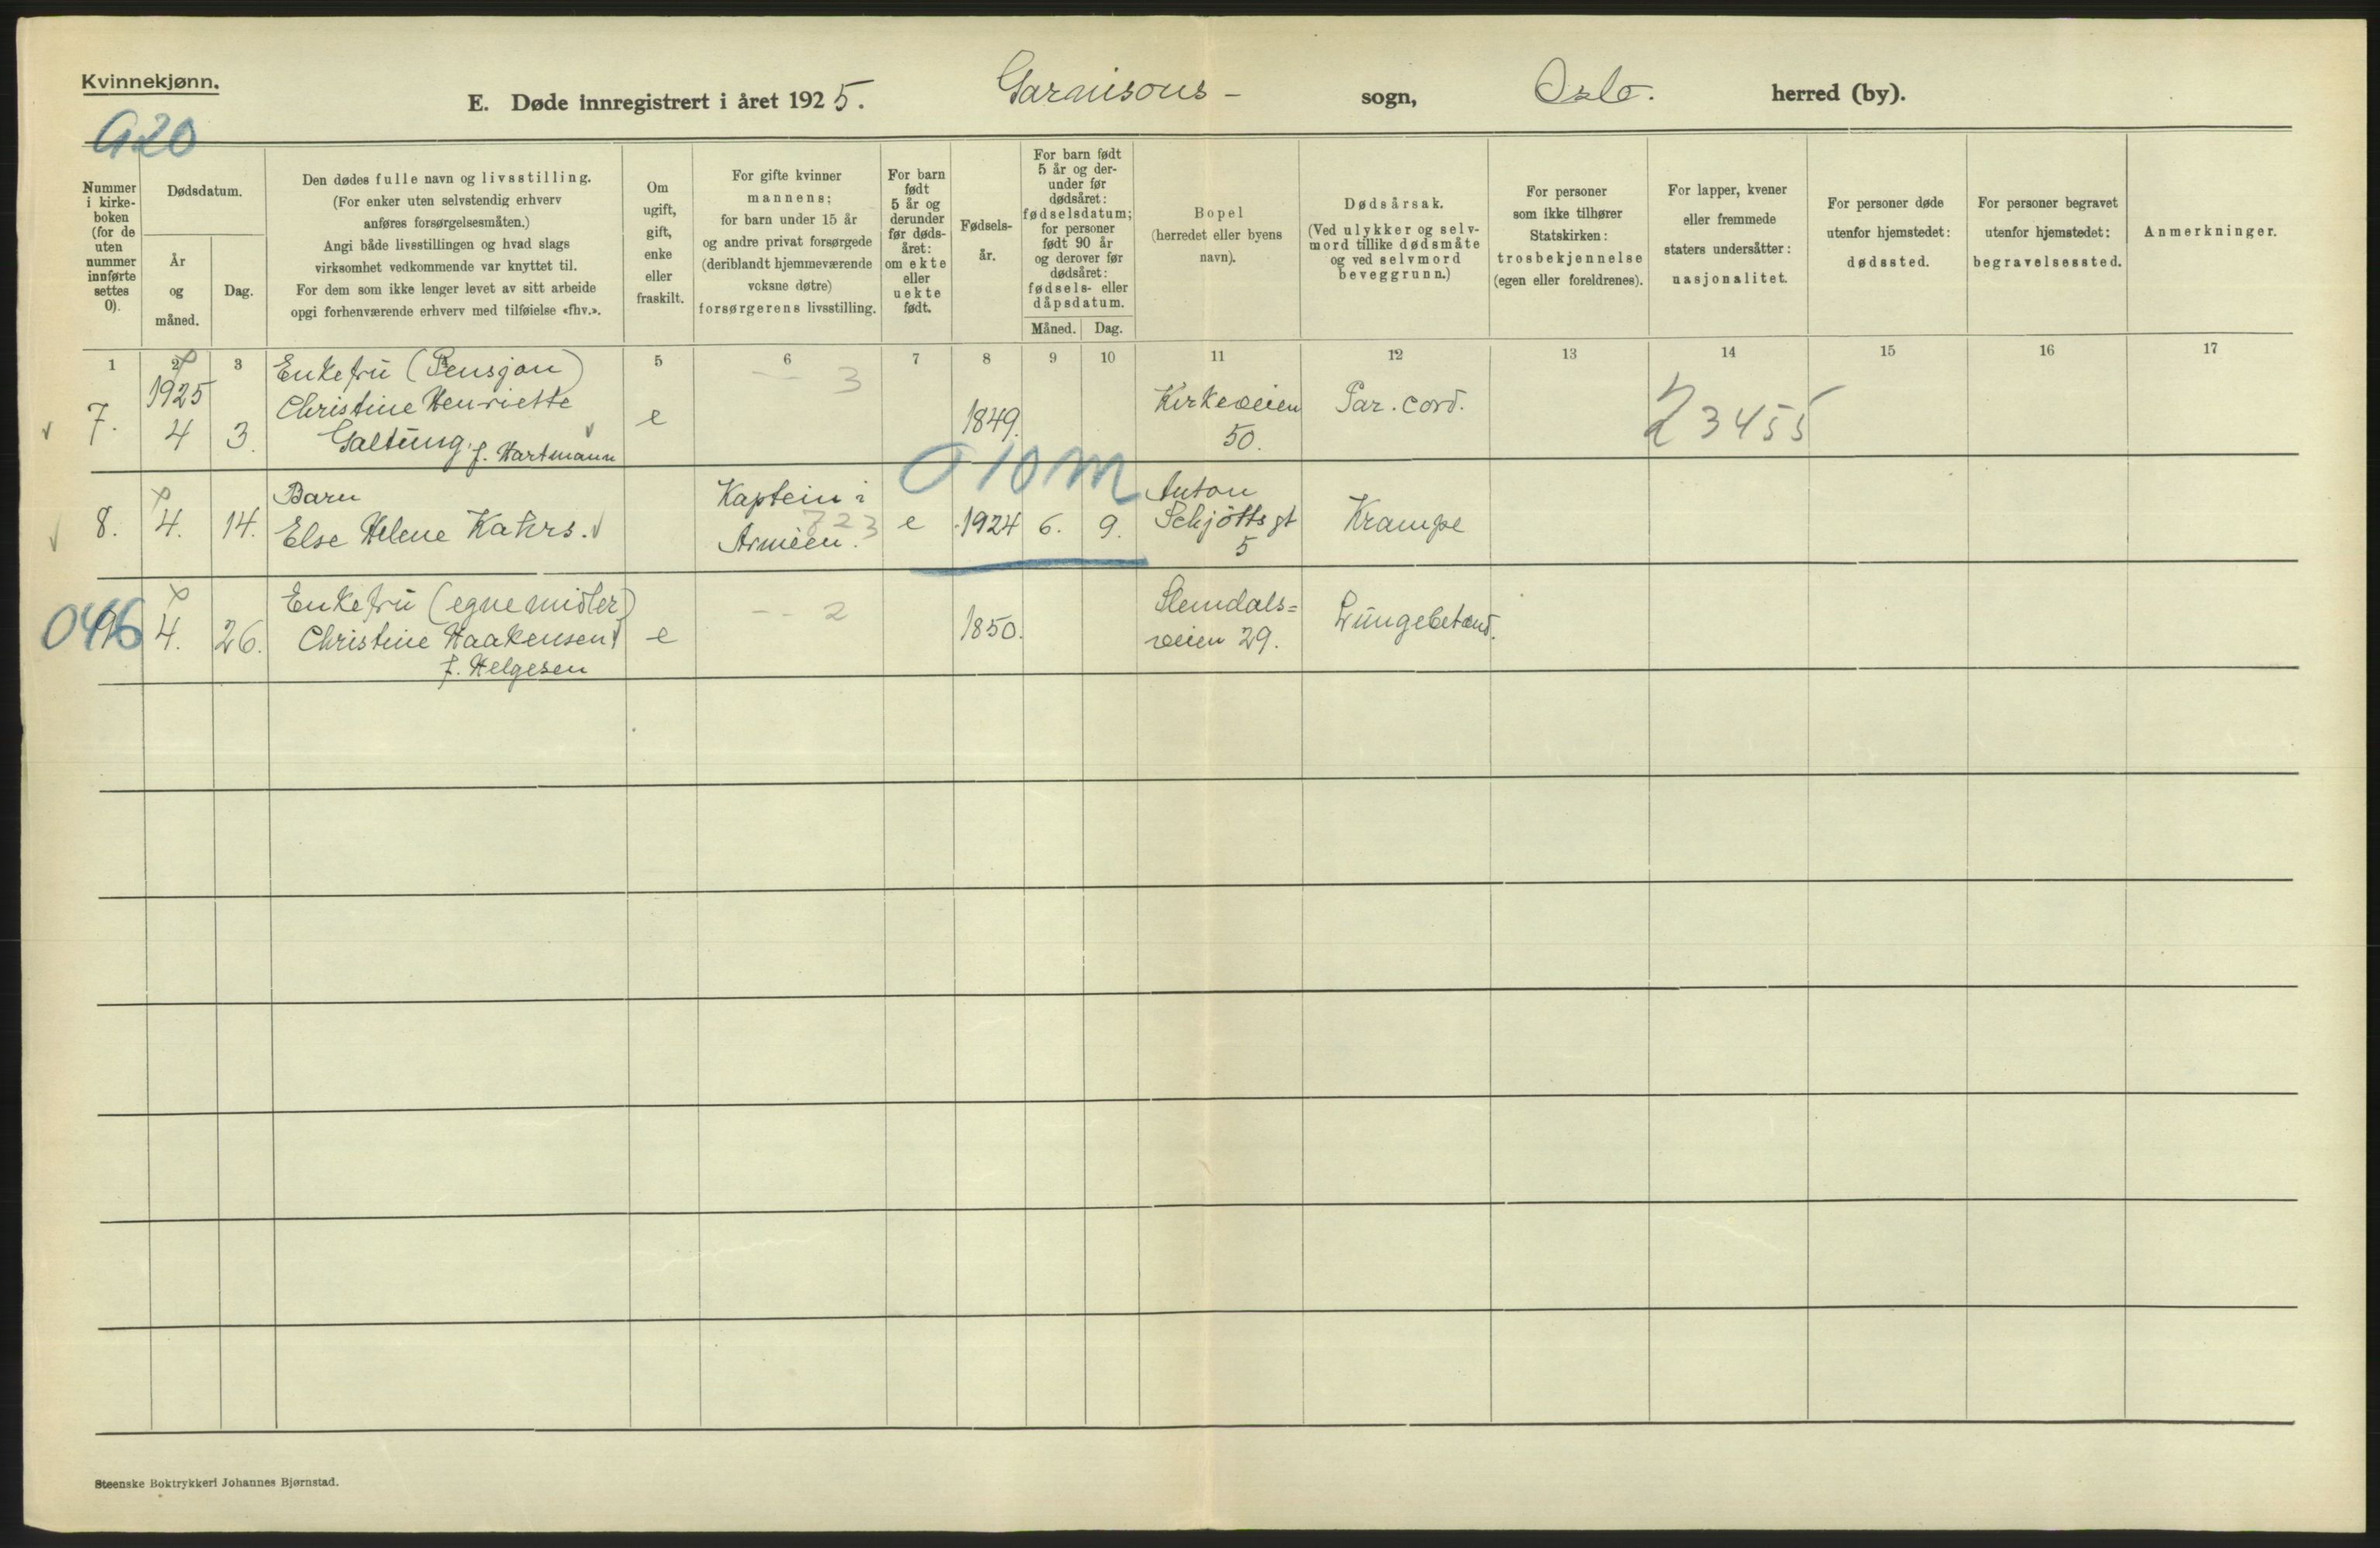 Kvinnekjønn.
E. Døde innregistrert i året 1925. Garnisons- sogn, Oslo. herred (by).
G20
Nummer
i kirke-
boken
(for de
uten
nummer
innførte
settes
0).
Dødsdatum.
År
og
måned.
Dag.
Den dødes fulle navn og livsstilling.
(For enker uten selvstendig erhverv
anføres forsørgelsesmåten.)
Angi både livsstillingen og hvad slags
virksomhet vedkommende var knyttet til.
For dem som ikke lenger levet av sitt arbeide
opgi forhenværende erhverv med tilføielse «fhv.».
Om
ugift,
gift,
enke
eller
fraskilt.
For gifte kvinner
mannens;
for barn under 15 år
og andre privat forsørgede
(deriblandt hjemmeværende
voksne døtre)
forsørgerens livsstilling.
For barn
født
5 år og
derunder
før døds-
året:
om ekte
eller
uekte
født.
Fødsels-
år.
For barn født
5 år og der-
under før
dødsåret:
fødselsdatum;
for personer
født 90 år
og derover før
dødsåret:
fødsels- eller
dåpsdatum.
Måned. Dag.
Bopel
(herredet eller byens
navn).
Dødsårsak.
(Ved ulykker og selv-
mord tillike dødsmåte
og ved selvmord
beveggrunn.)
For personer
som ikke tilhører
Statskirken:
trosbekjennelse
(egen eller foreldrenes).
For lapper, kvener
eller fremmede
staters undersåtter:
nasjonalitet.
For personer døde
utenfor hjemstedet:
dødssted.
For personer begravet
utenfor hjemstedet:
begravelsessted.
Anmerkninger.
1 2 3 5 6 7 8 9 10 11 12 13 14 15 16 17
7.
1925
4
3.
Enkefrü (Pensjon)
Christine Henriette
Galtüng, f. Hartmann
e
-- 3
1849.
Kirkeveien
50.
Par. cord.
23455
8.
4.
14.
Barn
Else Helene Kahrs.
Kaptein i
Armeen.
723
e
1924
6.
9.
010M
Anton
Schjøtts gt
5
Krampe
046
4.
26.
Enkefrü (egne midler)
Christine Haakensen
f. Helgesen
e
-- 2
1850.
Slemdals=
veien 29.
Lüngebetænd.
Steenske Boktrykkeri Johannes Bjørnstad.